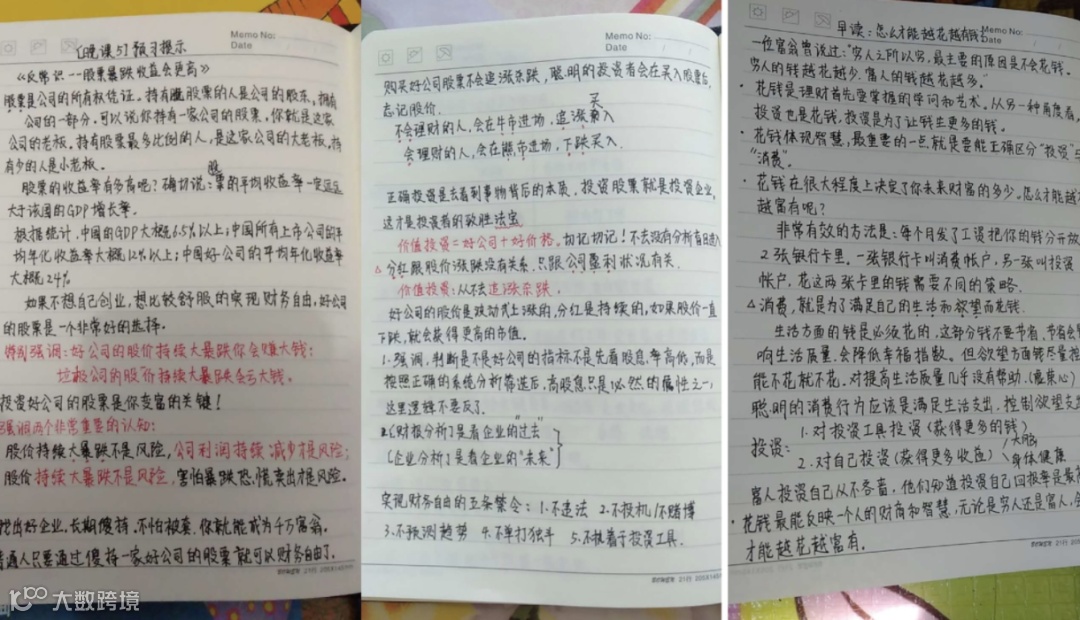 [晚课5]预习提示
Memo No:
Date
《反常识--股票暴跌收益会更高》
股票是公司的所有权凭证。持有股票的人是公司的股东,拥有
公司的一部分,可以说你持有一家公司的股票,你就是这家
公司的老板,持有股票最多比例的人,是这家公司的大老板,持
有少的人是小老板。
股票的收益率有多高呢?确切说:股票的平均收益率一定远远
大于该国的GDP增长率。
根据统计,中国的GDP大概6.5%以上;中国所有上市公司的年
均年化收益率大概12%以上;中国好公司的平均年化收益率
大概24%
如果不想自己创业,想比较舒服的实现财务自由,好公司
的股票是一个非常好的选择。
特别强调:好公司的股价持续大暴跌你会赚大钱;
垃圾公司的股价持续大暴跌会亏大钱。
投资好公司的股票是你变富的关键!
强调两个非常重要的认知:
股价持续大暴跌不是风险,公司利润持续减少才是风险;
股价持续大暴跌不是风险,害怕暴跌恐慌卖出才是风险。
挖出好企业,长期傻持,不怕被套,你就能成为千万富翁。
普通人只要通过傻持一家好公司的股票就可以财务自由了。
Memo No:
Date
购买好公司股票不会追涨杀跌,聪明的投资者会在买入股票后,
忘记股价.
不会理财的人,会在牛市进场,追涨买入
会理财的人,会在熊市进场,下跌买入.
正确投资是去看到事物背后的本质,投资股票就是投资企业,
这才是投资者的致胜法宝
价值投资=好公司+好价格,切记切记!不去没有分析盲目进入
△分红跟股价涨跌没有关系,只跟公司盈利状况有关.
价值投资:从不去追涨杀跌.
好公司的股价是跌动式上涨的,分红是持续的,如果股价一直
下跌,就会获得更高的市值。
1.强调,判断是不是好公司的指标不是先看股息率高低,而是
按照正确的系统分析筛选后,高股息只是必然的属性之一,
这里逻辑不要反了.
2.(财报分析)是看企业的"过去"
(企业分析)是看企业的"未来"
实现财务自由的五条禁令:1.不违法 2.不投机/不赌博
3.不预测趋势 4.不单打独斗 5.不执着于投资工具.
早读:怎么才能越花越有钱?
Memo No:
Date
一位富翁曾说过:"穷人之所以穷,最主要的原因是不会花钱.
穷人的钱越花越少,富人的钱越花越多."
·花钱是理财首先要掌握的学问和艺术,从另一种角度看,
投资也是花钱,投资是为了让钱生更多的钱.
·花钱体现智慧,最重要的一点就是要能正确区分"投资"与
"消费".
·花钱在很大程度上决定了你未来财富的多少,怎么才能越花
越富有呢?
非常有效的方法是:每个月发了工资把你的钱分开放
2张银行卡里。一张银行卡叫消费帐户,另一张叫投资
帐户,花这两张卡里的钱需要不同的策略.
△消费,就是为了满足自己的生活和欲望而花钱.
生活方面的钱是必须花的,这部分钱不要节省,节省会影
响生活质量,会降低幸福指数。但欲望方面钱尽量控
能不花就不花,对提高生活质量几乎没有帮助.(虚荣心)
聪明的消费行为应该是满足生活支出,控制欲望支出
投资:1.对投资工具投资(获得更多的钱)
2.对自己投资(获得更多收益) 大脑
身体健康
富人投资自己从不吝啬,他们知道投资自己回报率是最
·花钱最能反映一个人的财商和智慧,无论是穷人还是富人,会
才能越花越富有.
大数跨境